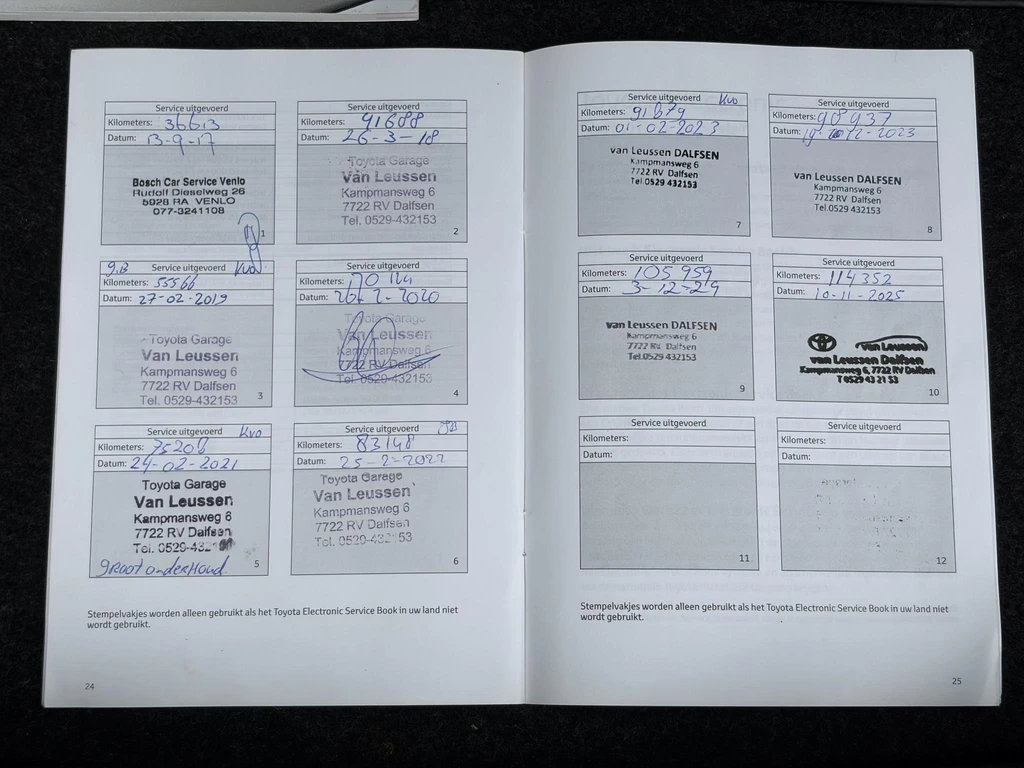 Service uitgevoerd
Kilometers: 36613
Datum: 13-9-17
Bosch Car Service Venlo
Rudolf Dieselweg 26
5928 RA VENLO
077-3241108
1
Service uitgevoerd
Kilometers: 41688
Datum: 26-3-18
Toyota Garage
Van Leussen
Kampmansweg 6
7722 RV Dalfsen
Tel. 0529-432153
2
g.B Service uitgevoerd Kvo
Kilometers: 55566
Datum: 27-02-2019
Toyota Garage
Van Leussen
Kampmansweg 6
7722 RV Dalfsen
Tel. 0529-432153
3
Service uitgevoerd
Kilometers:
Datum: 26-2-2020
Toyota Garage
Van Leussen
Kampmansweg 6
7722 RV Dalfsen
Tel. 0529-432153
4
Service uitgevoerd Kvo
Kilometers: 75208
Datum: 24-02-2021
Toyota Garage
Van Leussen
Kampmansweg 6
7722 RV Dalfsen
Tel. 0529-432
groot onderHoud
5
Service uitgevoerd
Kilometers: 83148
Datum: 25-2-2022
Toyota Garage
Van Leussen
Kampmansweg 6
7722 RV Dalfsen
Tel. 0529-432153
6
Stempelvakjes worden alleen gebruikt als het Toyota Electronic Service Book in uw land niet
wordt gebruikt.
24
Service uitgevoerd Kvo
Kilometers: 91679
Datum: 01-02-2023
van Leussen DALFSEN
Kampmansweg 6
7722 RV Dalfsen
Tel.0529 432153
7
Service uitgevoerd
Kilometers: 98937
Datum: 19-12-2023
van Leussen DALFSEN
Kampmansweg 6
7722 RV Dalfsen
Tel.0529 432153
8
Service uitgevoerd
Kilometers: 105959
Datum: 3-12-24
van Leussen DALFSEN
Kampmansweg 6
7722 RV Dalfsen
Tel.0529 432153
9
Service uitgevoerd
Kilometers: 114352
Datum: 10-11-2025
van Leussen
van Leussen Dalfsen
Kampmansweg 6, 7722 RV Dalfsen
T 0529 43 21 53
10
Service uitgevoerd
Kilometers:
Datum:
11
Service uitgevoerd
Kilometers:
Datum:
12
Stempelvakjes worden alleen gebruikt als het Toyota Electronic Service Book in uw land niet
wordt gebruikt.
25